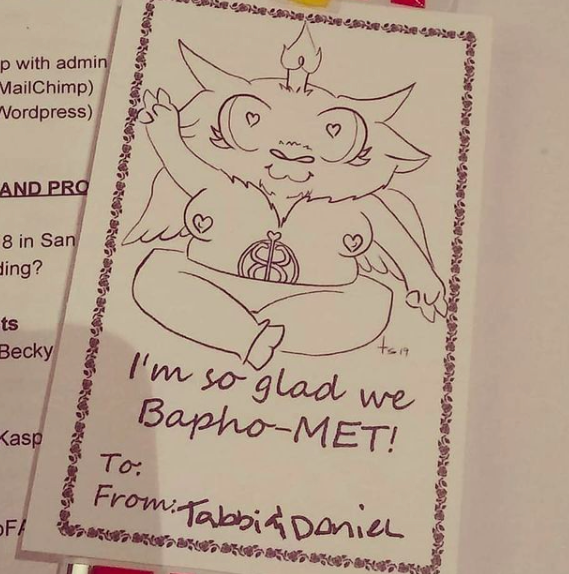 p with admin
MailChimp)
Wordpress)
AND PRO
8 in San
ding?
ts
Becky
Kasp
ts 19
I'm so glad we
Bapho-MET!
To:
From: Tabbi & Daniel